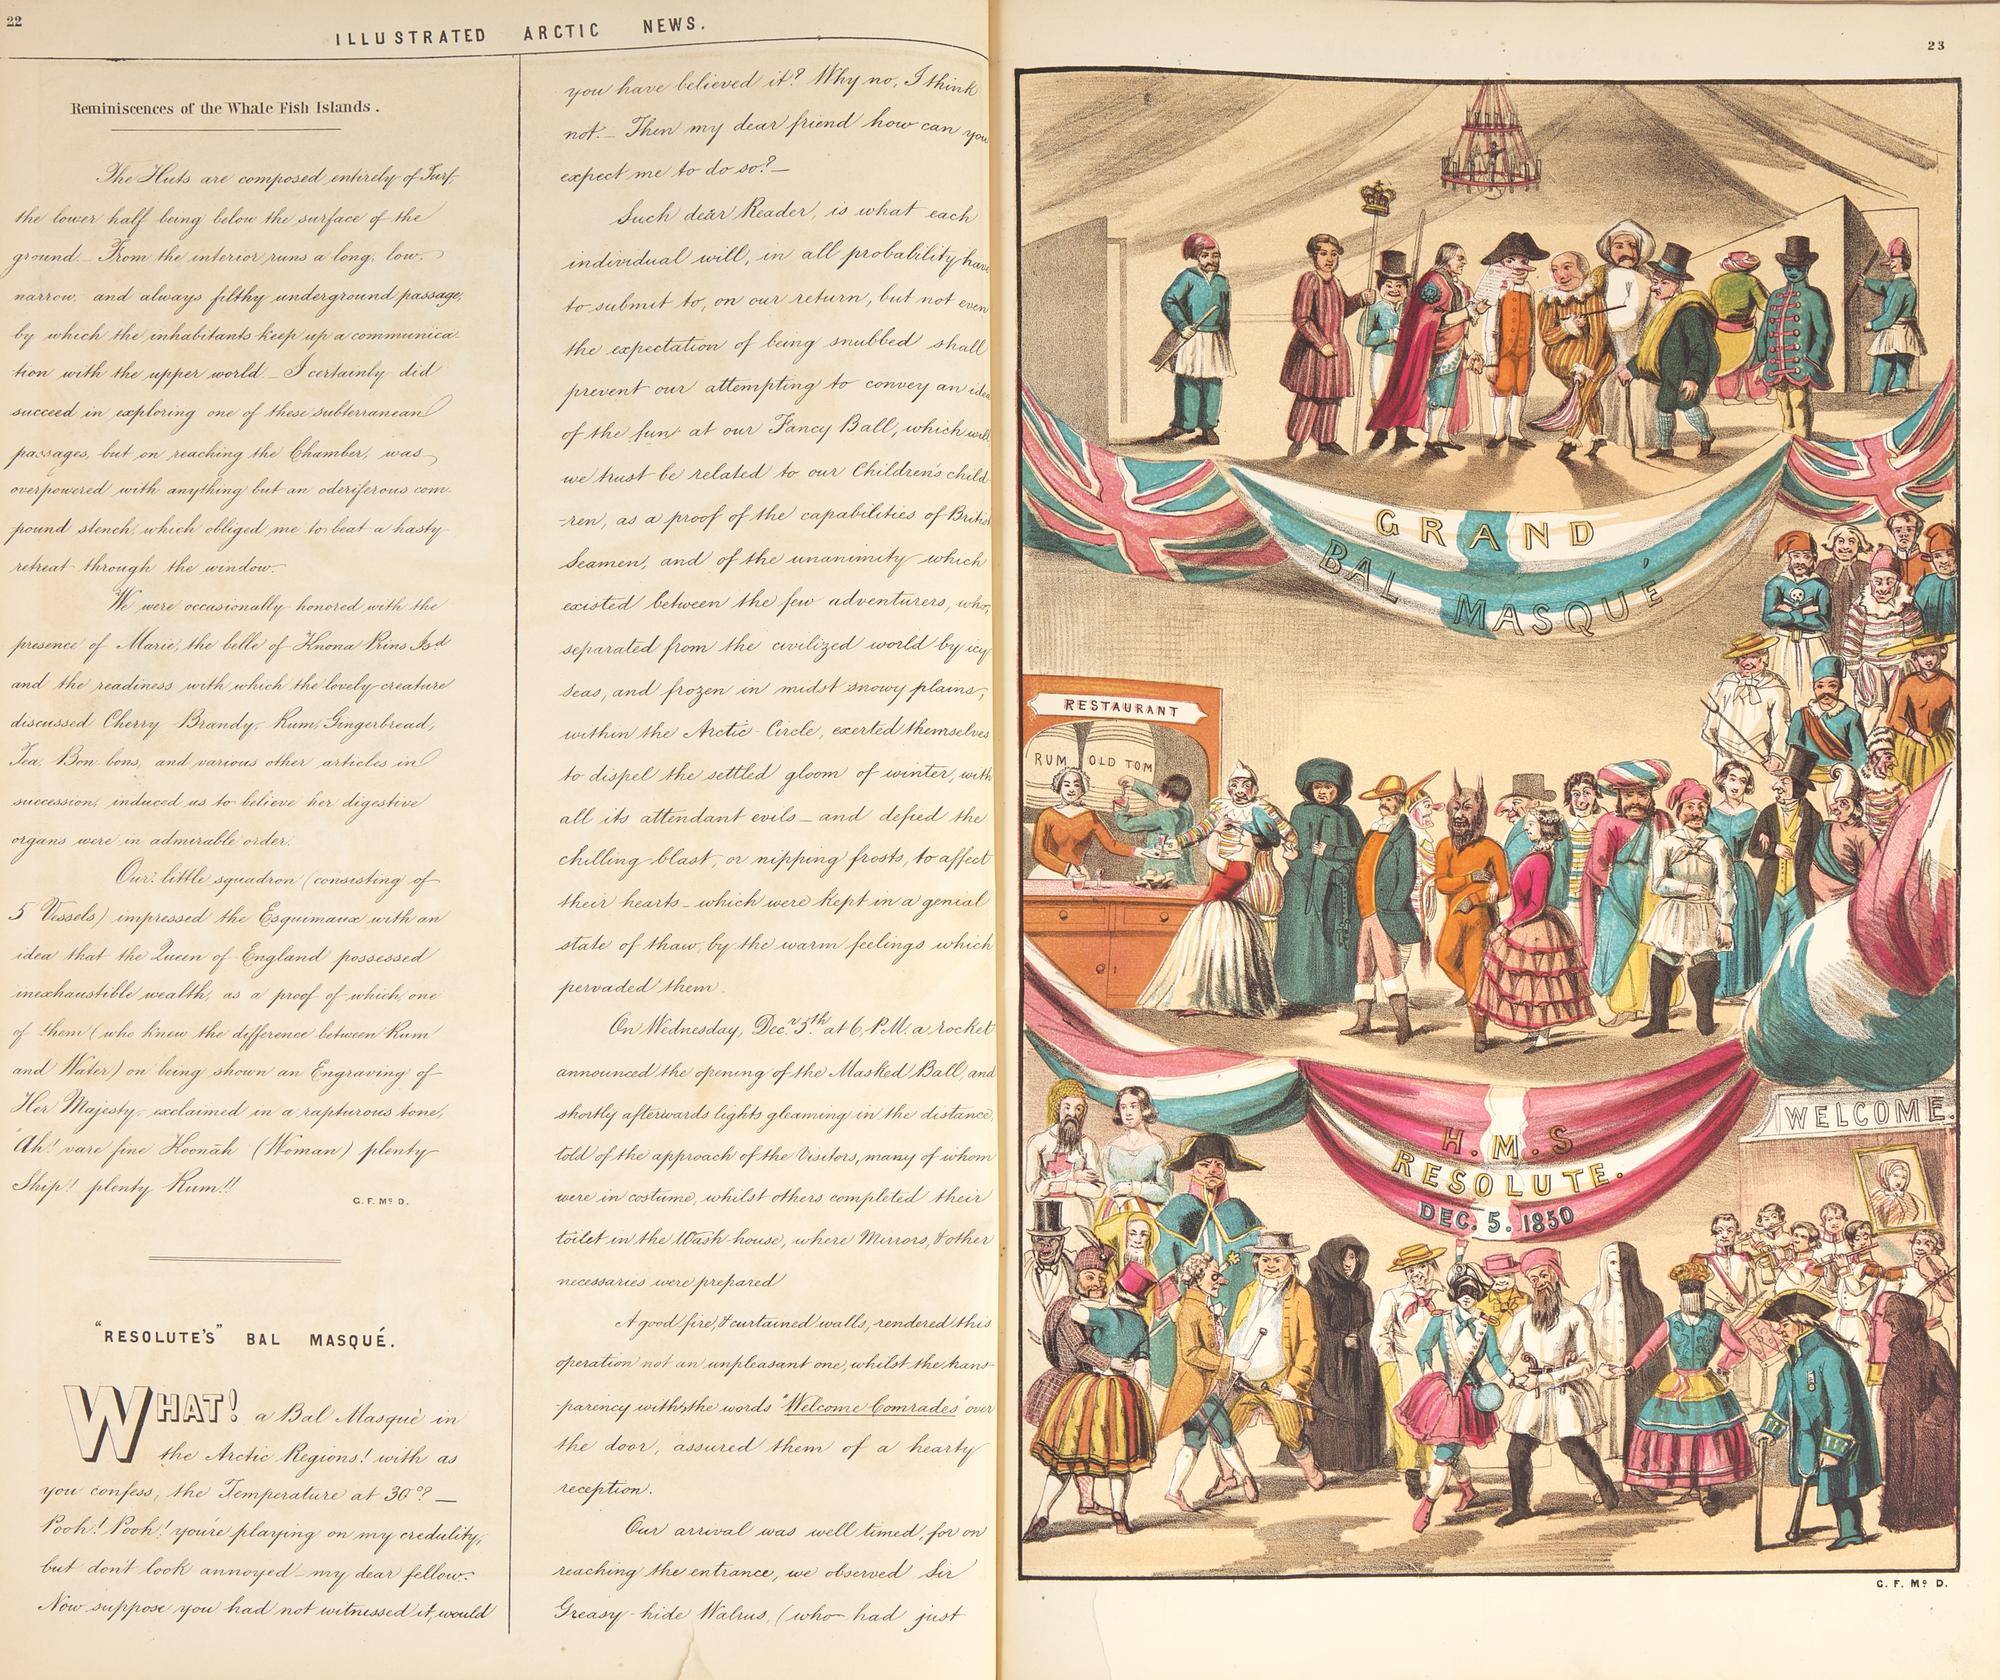 22
ILLUSTRATED ARCTIC NEWS.
Reminiscences of the Whale Fish Islands.
The Huts are composed entirely of Turf,
the lower half being below the surface of the
ground. From the interior runs a long, low,
narrow, and always filthy underground passage,
by which the inhabitants keep up a communica-
tion with the upper world. I certainly did
succeed in exploring one of these subterranean
passages, but on reaching the Chamber, was
overpowered with anything but an oderiferous com-
pound stench, which obliged me to beat a hasty
retreat through the window.
We were occasionally honored with the
presence of Marie, the belle of Knona Prins Isd
and the readiness with which the lovely creature
discussed Cherry Brandy, Rum, Gingerbread,
Tea, Bon bons, and various other articles in
succession, induced us to believe her digestive
organs were in admirable order.
Our little squadron (consisting of
5 Vessels) impressed the Esquimaux with an
idea that the Queen of England possessed
inexhaustible wealth, as a proof of which, one
of them (who knew the difference between Rum
and Water) on being shown an Engraving of
Her Majesty, exclaimed in a rapturous tone,
"Ah! vare fine Koonāh (Woman) plenty
Ship! plenty Rum!!
G. F. Mc D.
"RESOLUTE'S" BAL MASQUÉ.
WHAT! a Bal Masqué in
the Arctic Regions! with as
you confess, the Temperature at 30°? —
Pooh! Pooh! you're playing on my credulity,
but don't look annoyed my dear fellow.
Now suppose you had not witnessed it, would
you have believed it? Why no, I think
not. — Then my dear friend how can you
expect me to do so? —
Such dear Reader, is what each
individual will, in all probability have
to submit to, on our return, but not even
the expectation of being snubbed shall
prevent our attempting to convey an idea
of the fun at our Fancy Ball, which will
we trust be related to our Children's child-
-ren, as a proof of the capabilities of British
Seamen, and of the unanimity which
existed between the few adventurers, who,
separated from the civilized world by icy
seas, and frozen in midst snowy plains,
within the Arctic Circle, exerted themselves
to dispel the settled gloom of winter, with
all its attendant evils — and defied the
chilling blast, or nipping frosts, to affect
their hearts — which were kept in a genial
state of thaw, by the warm feelings which
pervaded them.
On Wednesday, Decr 5th at 6, P.M. a rocket
announced the opening of the Masked Ball, and
shortly afterwards lights gleaming in the distance,
told of the approach of the Visitors, many of whom
were in costume, whilst others completed their
toilet in the Wash-house, where Mirrors, & other
necessaries were prepared
A good fire, & curtained walls, rendered this
operation not an unpleasant one, whilst the trans-
-parency with the words "Welcome Comrades" over
the door, assured them of a hearty
reception.
Our arrival was well timed, for on
reaching the entrance, we observed Sir
Greasy-hide Walrus, (who had just
23
GRAND
BAL MASQUÉ
RESTAURANT
RUM OLD TOM
H.M.S
RESOLUTE.
DEC. 5. 1850
WELCOME.
G. F. Mc D.